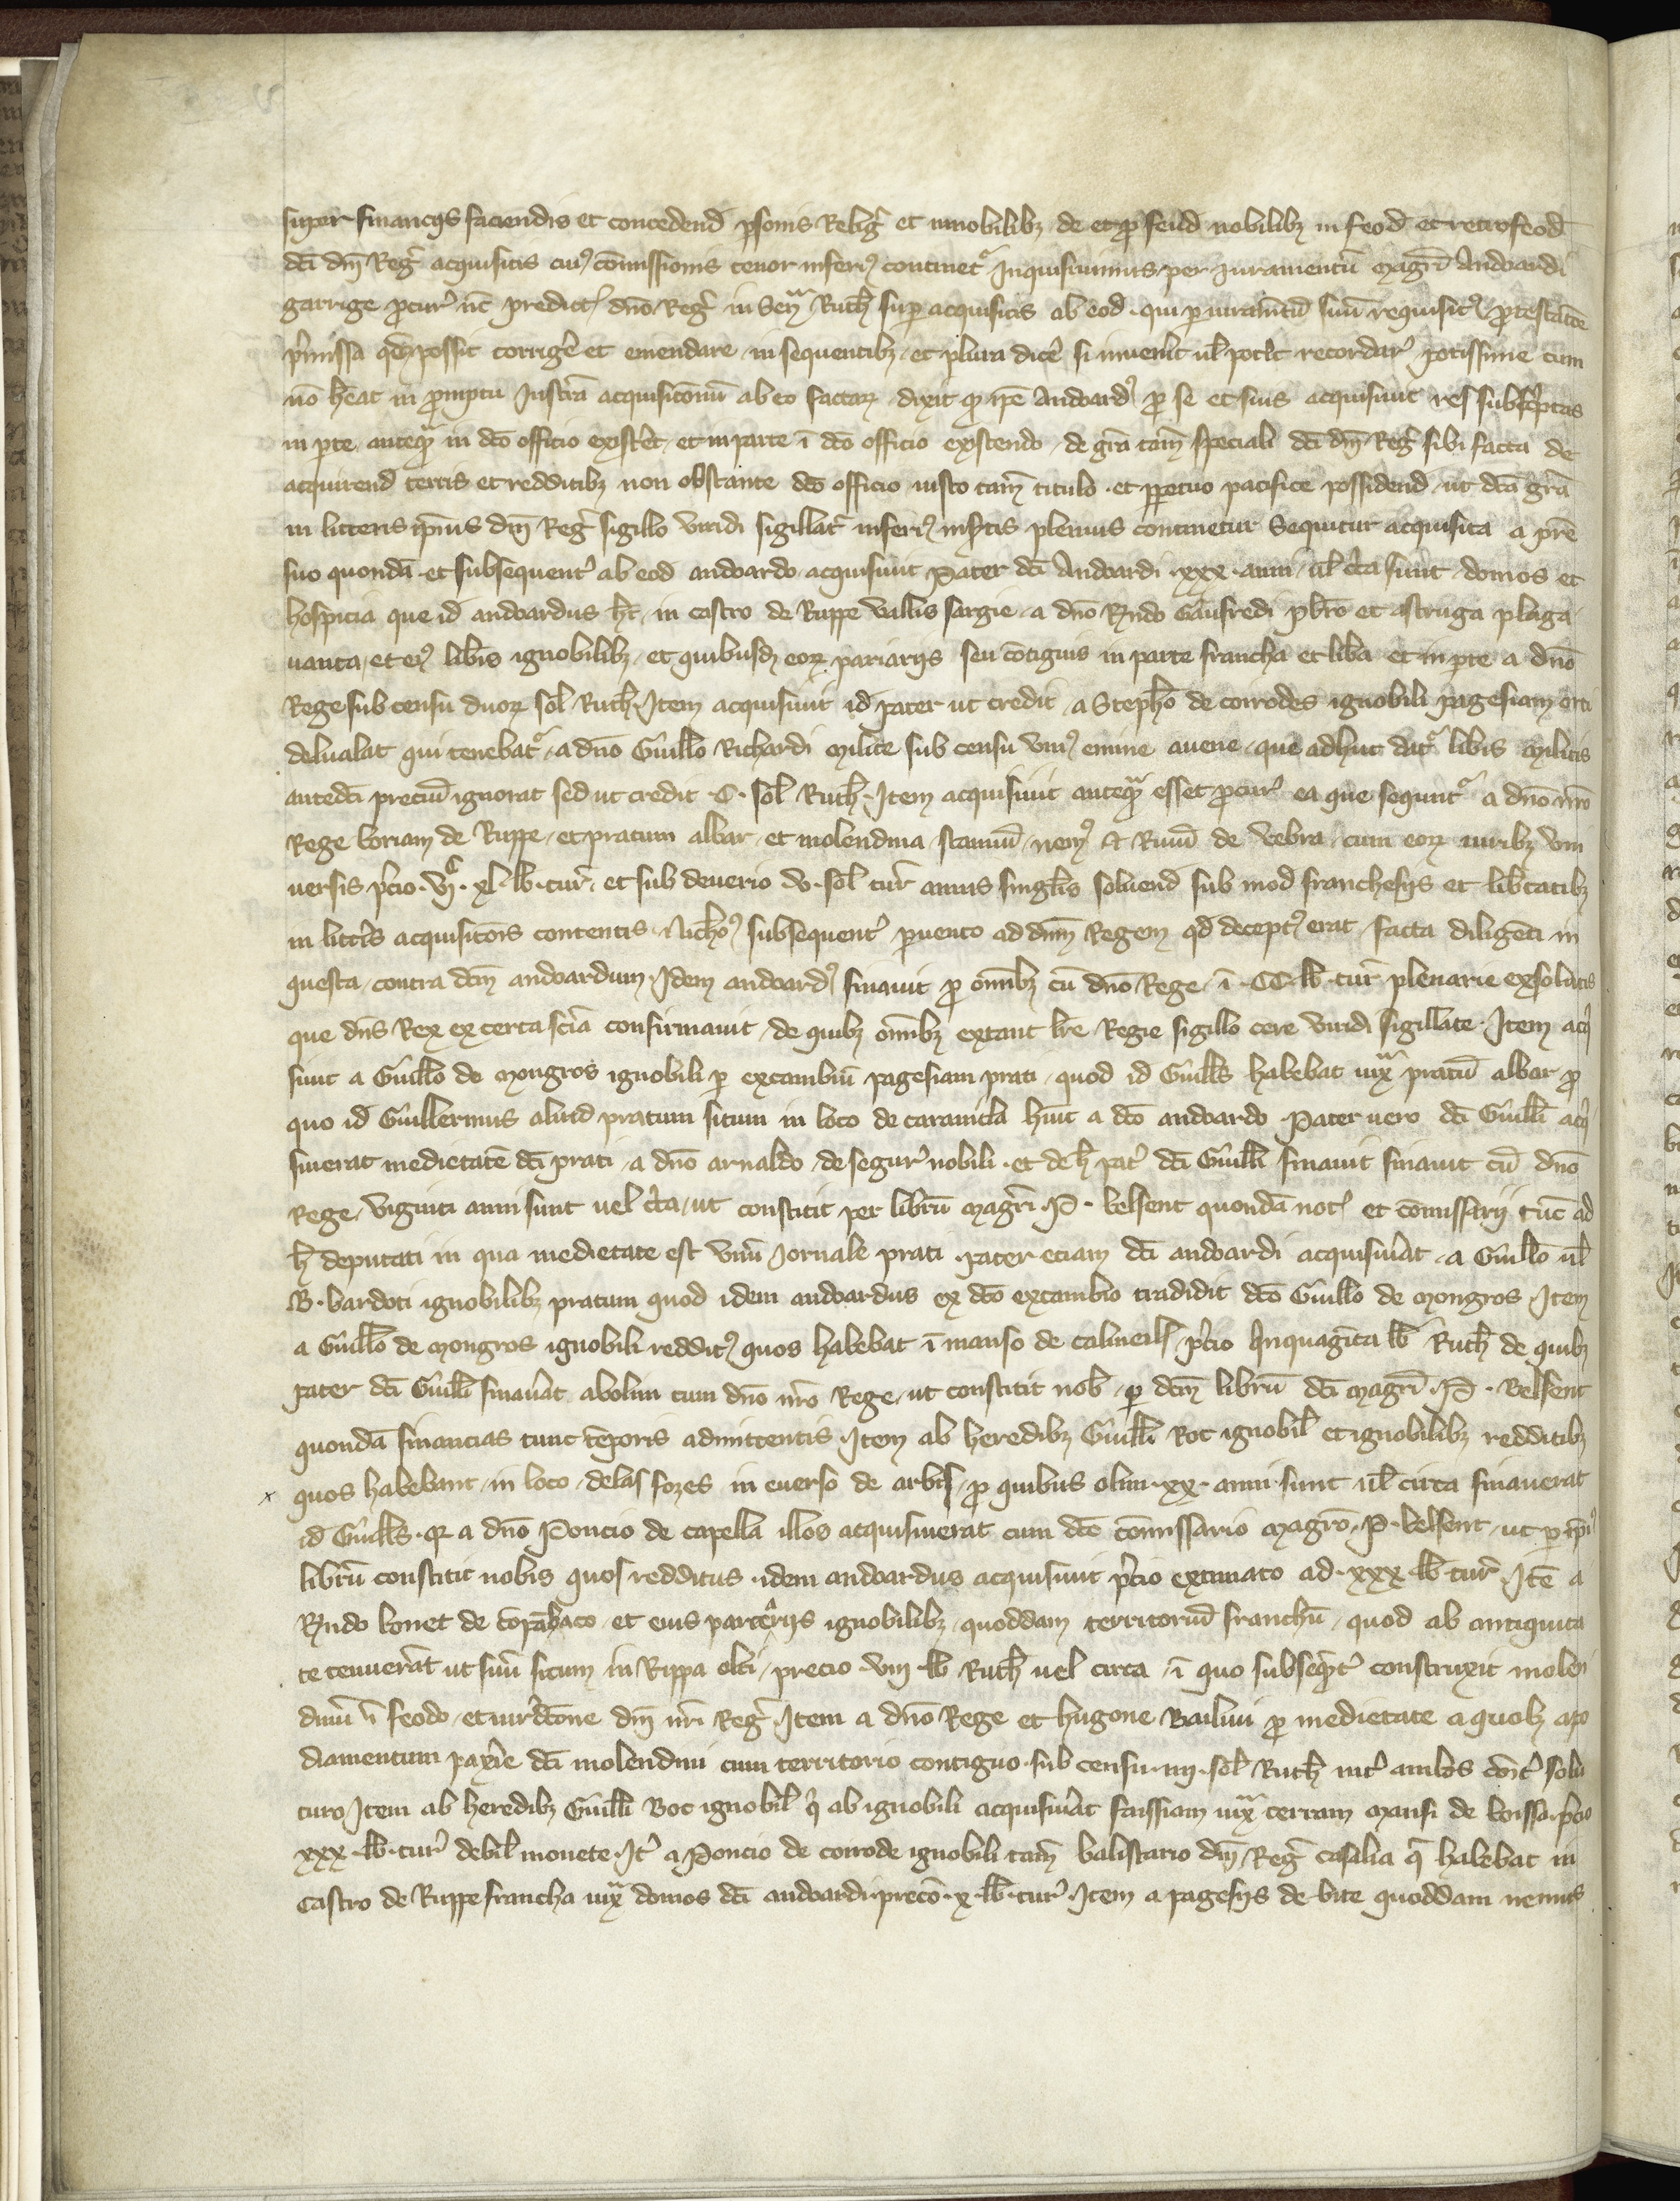 super financijs faciendis et concedend psonis Relig et innobilibz de et pro feud nobilibz in feod et retrofeod
dci dni Reg acquisitis cui9 comissionis tenor inferi9 continet Inquisiuimus per Juramentu magri Andoardi
garrige pcur nc predict dno Reg in Sen Ruth sup acquisitis ab eod qui p iuramtu suu requisit9 protestacoe
pmissa qd possit corrige et emendare in sequentibz et plura dice si inuenit ul potit recordar potissime cum
no heat in promptu Instra acquisitonu ab eo factar dixit q ipe Andoard9 p se et suis acquisiuit res subscptas
in pte anteq in dco officio existet et in parte i dco officio existendo de gra tam speciali dci dni Reg sibi facta de
acquirend terris et redditibz non obstante dco officio iusto tam titulo et ppetuo pacifice possidend ut dca gra
in litteris ipius dni Reg sigillo viridi sigillat inferi9 insertis plenius continetur Sequitur acquisita a pre
suo quonda et subsequent ab eod andoardo acquisiuit Pater dci Andoardi xxx anni ul cca sunt domos et
hospicia que id andoardus ht in castro de Ruppe vallis sargie a dno Rndo Gaufredi pbro et astruga plaga
uanta et ei9 libis ignobilibz et quibusd eor pariarijs seu cotiguis in parte francha et liba et in pte a dno
Rege sub censu duor sol Ruth Item acquisiuit id pater ut credit a Stepho de coirodes ignobili pagesiam orti
delualat qui tenebat a dno Guillo Richardi milite sub censu vni9 emine auene que adhuc dat libis militis
antedci preciu ignorat sed ut credit C sol Ruth Item acquisiuit anteq esset pcur ea que sequnt a dno nro
Rege boriam de Ruppe et pratum albar et molendina stannu nem9 et Riuu de vebra cum eor iuribz vni
uersis pcio vj xl lb tur et sub deuerio v sol tur annis singlis soluend sub mod franchesijs et libtatibz
in littris acquisitois contentis Nicho9 subsequent puento ad dnm Regem qd decept9 erat facta diligeti in
questa contra dcm andoardum Idem andoard9 finauit p omibz cu dno Rege i CC lb tur plenarie exsolutis
que dns Rex ex certa scia confirmauit de quibz omibz extant lre Regie sigillo cere viridi sigillate Item acq
siuit a Guillo de mongros ignobili p excambiu pagesiam prati quod id Guills habebat iux pratu albar p
quo id Guillermus aliud pratum situm in loco de carauicla huit a dco andoardo Pater uero dci Guilli acq
siuerat medietate dci prati a dno arnaldo de segur nobili et de h pat dci Guilli finauit finauit cu dno
Rege viginti anni sunt uel cca ut constitit per libru magri P belsent quonda not et comissarij tuc ad
h deputati in qua medietate est vnu Jornale prati Pater etiam dci andoardi acquisiuat a Guillo ul
B bardoti ignobilibz pratum quod idem andoardus ex dco excambio tradidit dco Guillo de mongros Item
a Guillo de mongros ignobili reddit9 quos habebat i manso de calmeils pcio Ququaginta lb Ruth de quibz
pater dci Guilli finauat abolim cum dno nro Rege ut constitit nob p dcm libru dci magri P Belsent
quonda financias tunc temporis admittentis Item ab heredibz Guilli Roc ignobil et ignobilibz redditibz
quos habebant in loco delas fozes in euerso de arbis p quibus olim xx anni sunt ul circa finauerat
id Guills q a dno Poncio de capella illos acquisiuerat cum dco comissario magro P belsent ut p ipi9
libru constitit nobis quos redditus idem andoardus acquisiuit pcio extimato ad xxx lb tur Ite a
Rndo bonet de copabaco et eius parcerijs ignobilibz quoddam territoriu franchu quod ab antiquita
te tenuerat ut suu situm in Rippa olti precio viij lb Ruth uel circa i quo subseqnt construxit molen
dinu i feodo et iurdcone dni nri Reg Item a dno Rege et hugone Bailiui p medietate a quolz apo
diamentum paxie dci molendini cum territorio contiguo sub censu iiij sol Ruth int ambos doit solu
turo Item ab heredibz Guilli Boc ignobil q ab ignobili acquisiuat faissiam iux terram mansi de boisso pcio
xxx lb tur debil monete It a Poncio de coirode ignobili tam balistario dni Reg casalia q habebat in
castro de Ruppe francha iux domos dci andoardi precio x lb tur Item a pagesijs de bite quoddam nemus